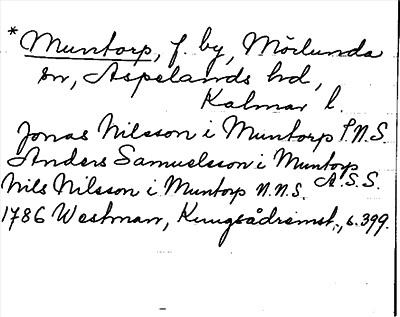 * Muntorp, f. by, Mörlunda
sn, Aspelands hd,
Kalmar l.
Jonas Nilsson i Muntorp I.N.S.
Anders Samuelsson i Muntorp
A.S.S.
Nils Nilsson i Muntorp N.N.S.
1786 Westman, Kungsådremst., s. 399.